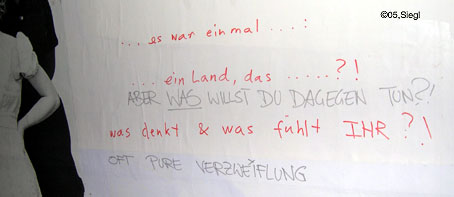 ©05,Siegl
... es war einmal ... :
.... ein Land, das ..... ?!
ABER WAS WILLST DU DAGEGEN TUN?!
was denkt & was fühlt IHR?!
OFT PURE VERZWEIFLUNG